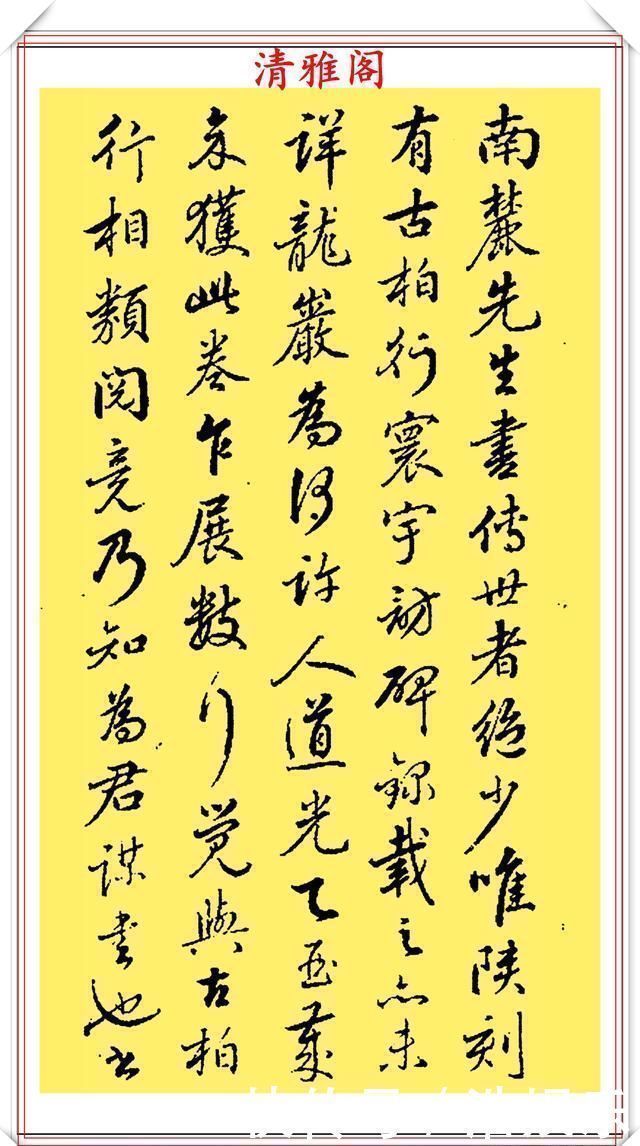 清雅阁
南麓先生書傳世者絕少唯陝刻
有古柏行寰宇訪碑錄載之亦未
詳龍巖為何許人道光乙丑歲
余獲此卷乍展數行覺與古柏
行相類閱竟乃知為君謀書也